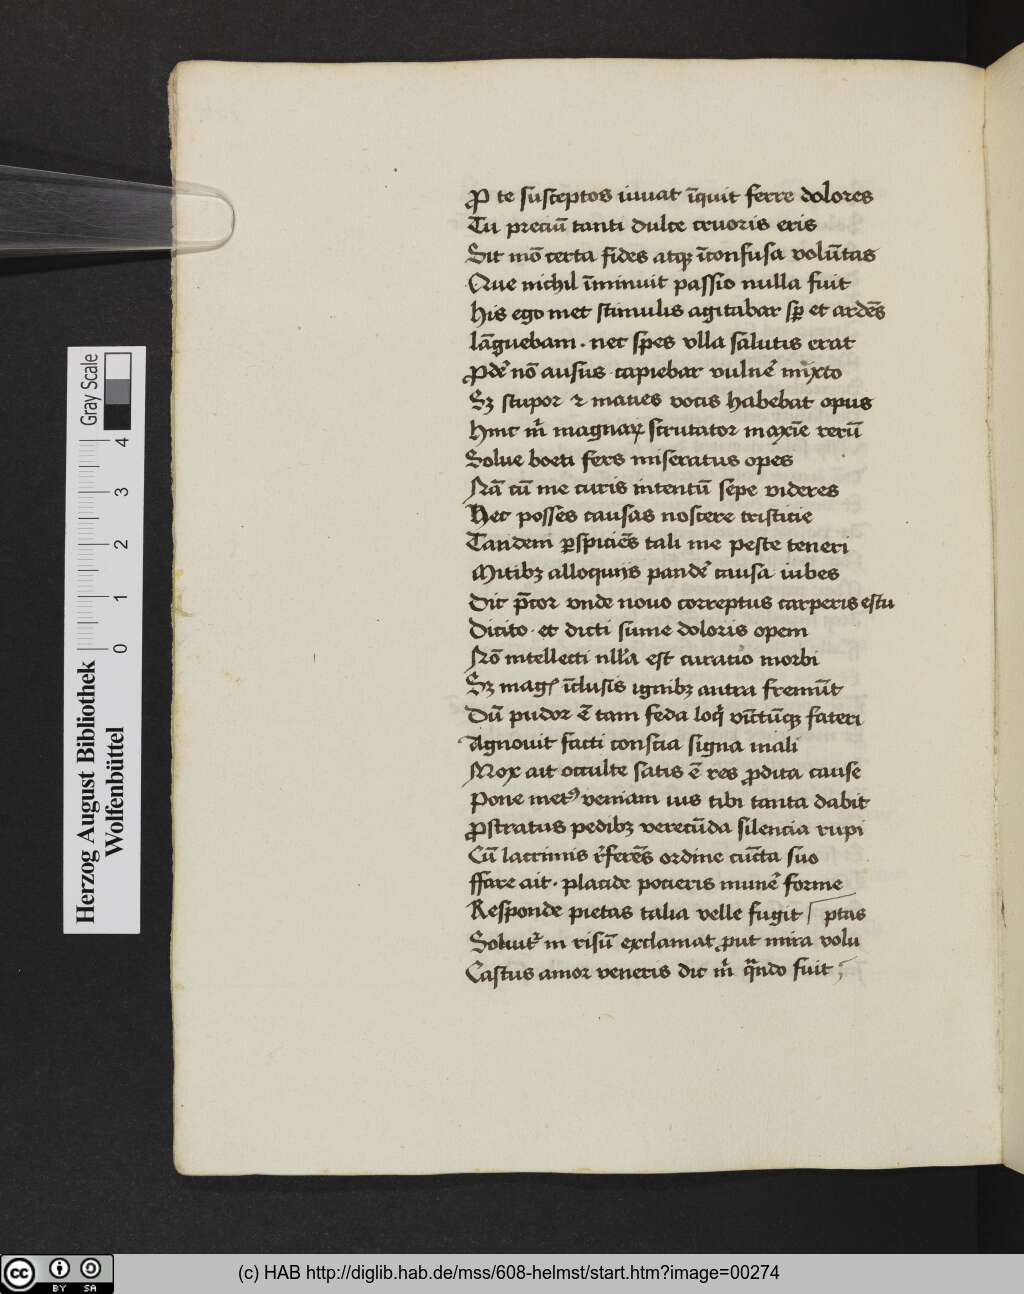 ꝓ te susceptos iuuat īquit ferre dolores
Tu preciū tanti dulce cruoris eris
Sit mō certa fides atqꝫ īconfusa volūtas
Que nichil īminuit passio nulla fuit
His ego met stimulis agitabar sꝑ et ardēs
lāguebam . nec spes vlla salutis erat
ꝓdē nō ausus capiebar vulnē mixto
Sꝫ stupor ⁊ macies vocis habebat opus
Hinc m̄ magnaꝝ scrutator maxīe rerū
Solue boeti fers miseratus opes
Nā cū me curis intentū sepe videres
Nec posses causas noscere tristicie
Tandem ꝑspiciēs tali me peste teneri
Mitibꝫ alloquijs pandē causa iubes
Dic p̄cor vnde nouo correptus carperis estu
Dicito . et dicti sume doloris opem
Nō intellecti nll'a est curatio morbi
Sꝫ mag' īclusis ignibꝫ antra fremūt
Dū pudor ē tam feda loq̄ victūqꝫ fateri
Agnouit facti conscia signa mali
Mox ait occulte satis ē res ꝓdita cause
Pone metꝰ veniam ius tibi tanta dabit
ꝓstratus pedibꝫ verecūda silencia rupi
Cū lacrimis r̄ferēs ordine cūcta suo
ffare ait . placide pocieris munē forme
Responde pietas talia velle fugit ptas
Soluit᷑ in risū exclamat ꝓut mira volu
Castus amor veneris dic m̄ qn̄do fuit ;
Herzog August Bibliothek
Wolfenbüttel
Gray Scale
0 1 2 3 4
cc BY SA
(c) HAB http://diglib.hab.de/mss/608-helmst/start.htm?image=00274